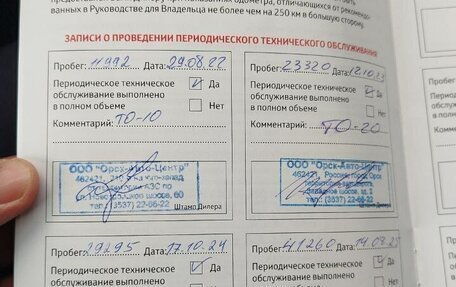 вание при показаниях одометра, отличающихся от рекомендо-
ванных в Руководстве для Владельца не более чем на 250 км в большую сторону.
ЗАПИСИ О ПРОВЕДЕНИИ ПЕРИОДИЧЕСКОГО ТЕХНИЧЕСКОГО ОБСЛУЖИВАНИЯ
Пробег: 11992 Дата: 29.08.22
Периодическое техническое Да
обслуживание выполнено
в полном объеме Нет
Комментарий: ТО-10
ООО "Орск-Авто-Центр"
462421,
АЗС по
60
тел.: (3537) 22-66-22
Штамп Дилера
Пробег: 23320 Дата: 12.10.23
Периодическое техническое Да
обслуживание выполнено
в полном объеме Нет
Комментарий: ТО-20
ООО "Орск-Авто-Центр"
462421, Россия, город Орск
тел.: (3537) 22-66-22
Штамп Дилера
Пробег: 29295 Дата: 17.10.24
Периодическое техническое Да
обслуживание выполнено
Пробег: 41260 Дата: 14.08.25
Периодическое техническое Да
обслуживание выполнено
в полном объеме Нет